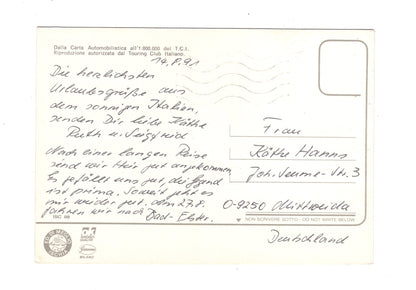 Dalla Carta Automobilistica all'1:800.000 del T.C.I.
Riproduzione autorizzata dal Touring Club Italiano.
14.8.91
Die herzlichsten
Urlaubsgrüße aus
dem sonnigen Italien,
senden Dir liebe Käthe
Ruth u. Siegfried
Nach einer langen Reise
sind wir hier gut angekommen
Es gefällt uns gut, die Gegend
ist prima. Soweit geht es
mir wieder gut. dem 27.8.
fahren wir nach Bad-Elster.
Frau
Käthe Hanns
Joh.-Seume-Str. 3
O-9250 Mittweida
NON SCRIVERE SOTTO - DO NOT WRITE BELOW
Deutschland
MILANO